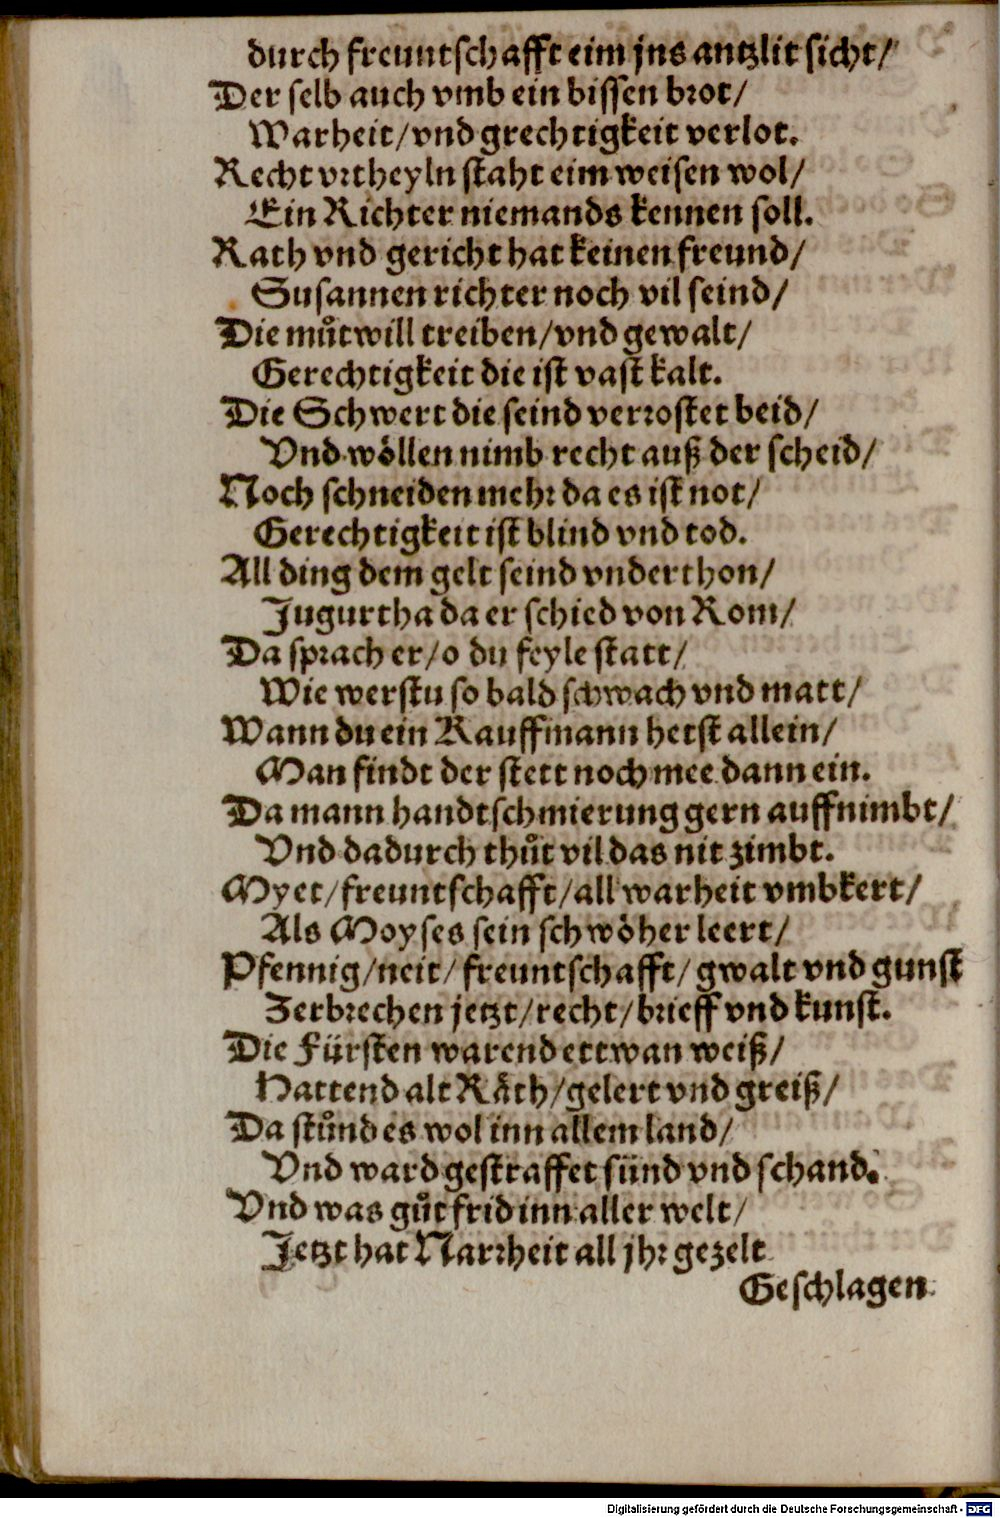 durch freuntschafft eim jns antzlit sicht/
Der selb auch vmb ein bissen brot/
Warheit/vnd grechtigkeit verlot.
Recht vrtheyln staht eim weisen wol/
Ein Richter niemands kennen soll.
Rath vnd gericht hat keinen freund/
Susannen richter noch vil seind/
Die muͦtwill treiben/vnd gewalt/
Gerechtigkeit die ist vast kalt.
Die Schwert die seind verrostet beid/
Vnd woͤllen nimb recht auß der scheid/
Noch schneiden mehr da es ist not/
Gerechtigkeit ist blind vnd tod.
All ding dem gelt seind vnderthon/
Jugurtha da er schied von Rom/
Da sprach er/o du feyle statt/
Wie werstu so bald schwach vnd matt/
Wann du ein Kauffmann hetst allein/
Man findt der stett noch mee dann ein.
Da mann handtschmierung gern auffnimbt/
Vnd dadurch thuͦt vil das nit zimbt.
Myet/freuntschafft/all warheit vmbkert/
Als Moyses sein schwoͤher leert/
Pfennig/neit/freuntschafft/gwalt vnd gunst
Zerbrechen jetzt/recht/brieff vnd kunst.
Die Fürsten warend ettwan weiß/
Hattend alt Raͤth/gelert vnd greiß/
Da stuͦnd es wol inn allem land/
Vnd ward gestraffet sünd vnd schand.
Vnd was guͦt frid inn aller welt/
Jetzt hat Narrheit all jhr gezelt
Geschlagen
Digitalisierung gefördert durch die Deutsche Forschungsgemeinschaft - DFG